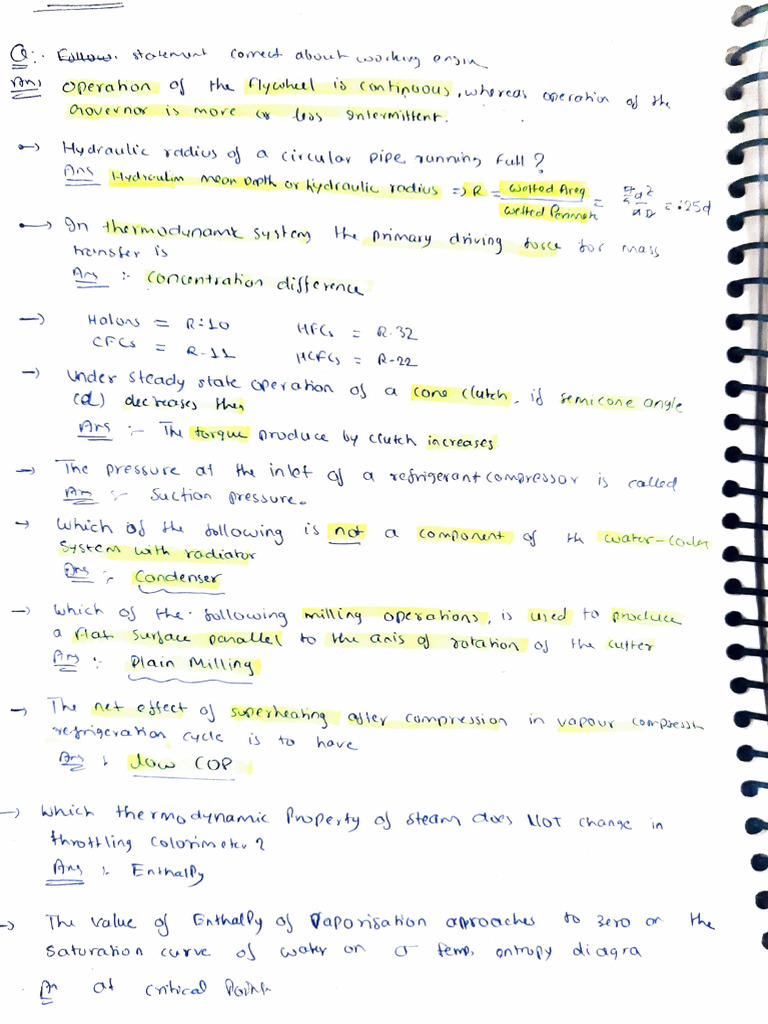 Q:- Follow. statement correct about working engin
Ans operation of the flywheel is continuous, whereas operation of the
Governor is more or less Intermittent.
→ Hydraulic radius of a circular pipe running full?
Ans Hydraulim mean Depth or hydraulic radius => R = Wetted Area / Wetted Perimeter = π/4 d² / πD = .25d
→ In thermodynamic system the primary driving force for mass
transfer is
Ans :- Concentration difference
→ Halons = R-10 HFCs = R-32
CFCs = R-11 HCFCs = R-22
→ Under steady state operation of a cone clutch, if semicone angle
(α) decreases then
Ans :- The torque produce by clutch increases
→ The pressure at the inlet of a refrigerant compressor is called
An :- Suction pressure.
→ Which of the following is not a component of the water-cooler
System with radiator
Ans :- Condenser
→ Which of the following milling operations, is used to produce
a flat surface parallel to the axis of rotation of the cutter
Ans :- Plain Milling
→ The net effect of superheating after compression in vapour compressn
refrigeration cycle is to have
Ans : low COP
→ Which thermodynamic Property of steam does NOT change in
throttling calorimeter?
Ans :- Enthalpy
→ The value of Enthalpy of Vaporisation approaches to zero on the
saturation curve of water on a temp. entropy diagra
An at critical Point